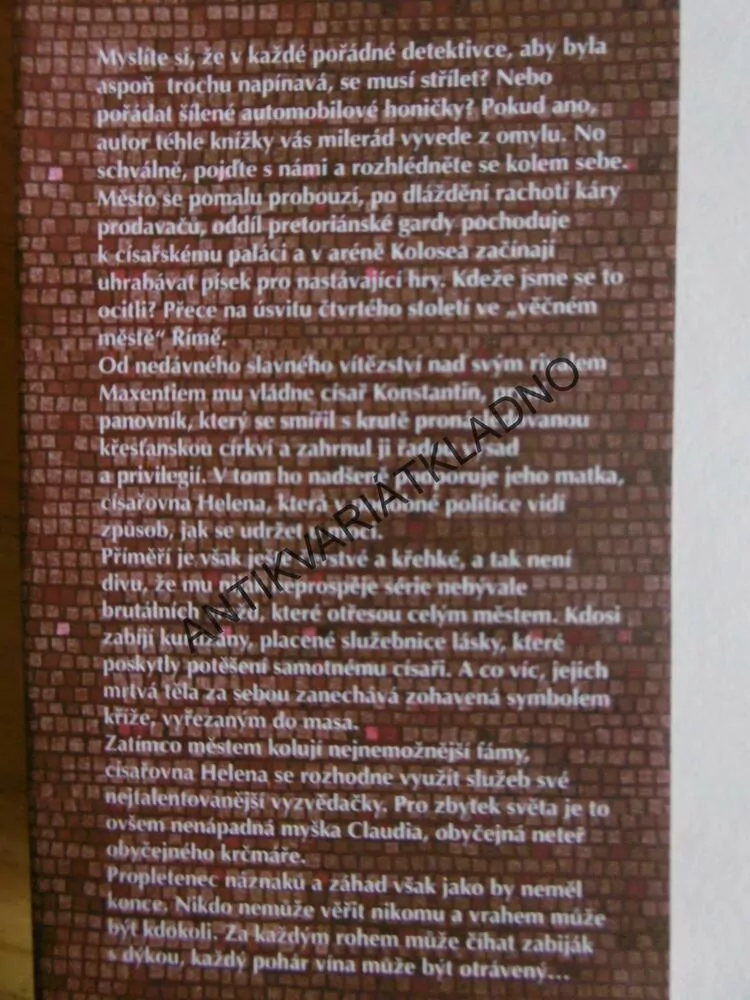 Myslíte si, že v každé pořádné detektivce, aby byla
aspoň trochu napínavá, se musí střílet? Nebo
pořádat šílené automobilové honičky? Pokud ano,
autor téhle knížky vás milerád vyvede z omylu. No
schválně, pojďte s námi a rozhlédněte se kolem sebe.
Město se pomalu probouzí, po dláždění rachotí káry
prodavačů, oddíl pretoriánské gardy pochoduje
k císařskému paláci a v aréně Kolosea začínají
uhrabávat písek pro nastávající hry. Kdeže jsme se to
ocitli? Přece na úsvitu čtvrtého století ve „věčném
městě“ Římě.
Od nedávného slavného vítězství nad svým
Maxentiem mu vládne císař Konstantin,
panovník, který se smířil s krutě
křesťanskou církví a zahrnul ji
a privilegií. V tom ho nadšeně jeho matka,
císařovna Helena, která politice vidí
způsob, jak se udržet
Příměří je však a křehké, a tak není
divu, že mu série nebývale
brutálních které otřesou celým městem. Kdosi
zabíjí kurtizány, placené služebnice lásky, které
poskytly potěšení samotnému císaři. A co víc, jejich
mrtvá těla za sebou zanechává zohavená symbolem
kříže, vyřezaným do masa.
Zatímco městem kolují nejnemožnější fámy,
císařovna Helena se rozhodne využít služeb své
nejtalentovanější vyzvědačky. Pro zbytek světa je to
ovšem nenápadná myška Claudia, obyčejná neteř
obyčejného krčmáře.
Propletenec náznaků a záhad však jako by neměl
konce. Nikdo nemůže věřit nikomu a vrahem může
být kdokoli. Za každým rohem může číhat zabiják
s dýkou, každý pohár vína může být otrávený...
ANTIKVARIÁTKLADNO